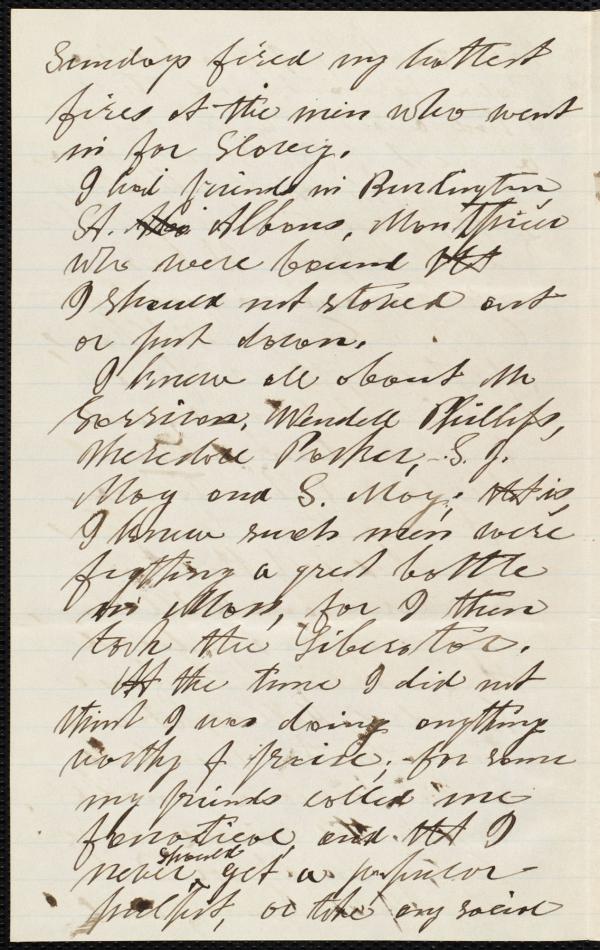 Sundays fired my hottest
fires at the men who went
in for Slavery.
I had friends in Burlington
St. Albans, Montpelier
who were bound that
I should not starved out
or put down.
I knew all about Mr
Garrison, Wendell Phillips,
Theredore Parker, S. J.
May and S. May; that is,
I knew such men were
fighting a great battle
in Mass, for I then
took the Liberator.
At the time I did not
think I was doing anything
worthy of praise; for some
my friends called me
fanatical, and that I
never should get a popular
pulpit, or take any social